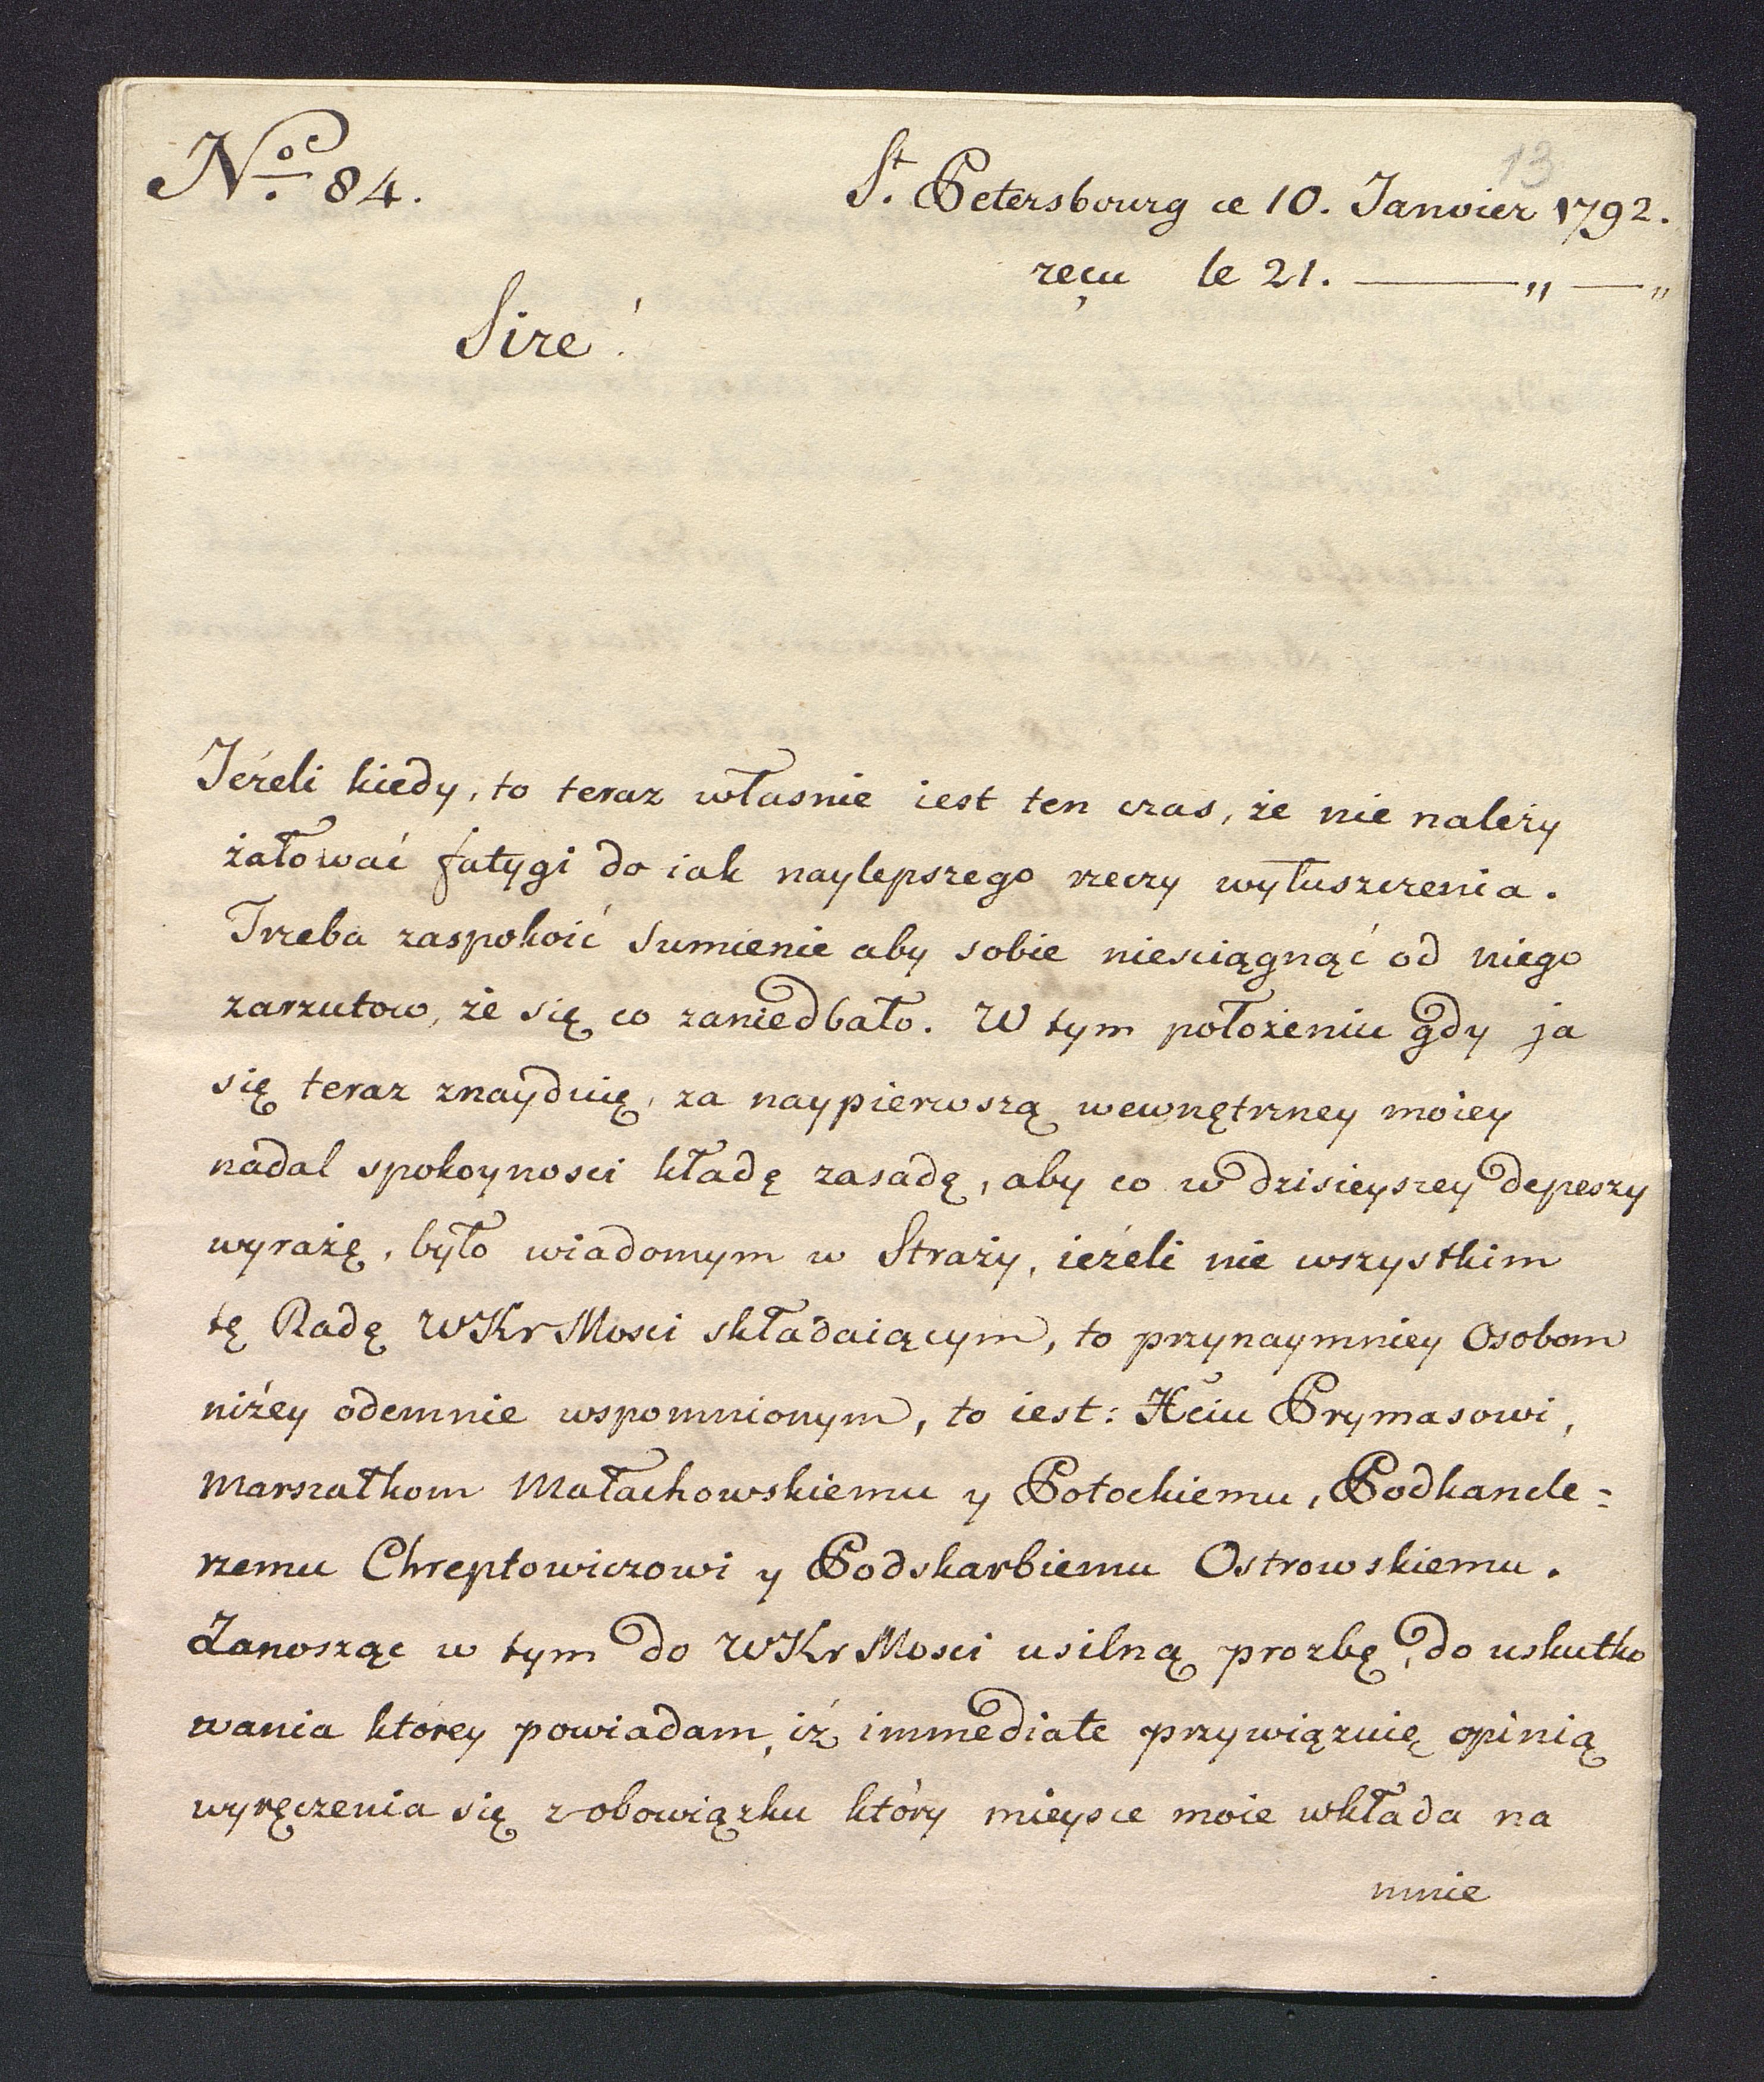 13
No. 84.
St. Petersbourg ce 10. Janvier 1792.
reçu le 21. ——— „ — „
Sire!
Jeżeli kiedy, to teraz własnie iest ten czas, że nie należy
żałować fatygi do iak naylepszego rzeczy wyłuszczenia.
Trzeba zaspokoić Sumienie aby sobie niesciągnąć od niego
zarzutow, że się co zaniedbało. W tym położeniu gdy ja
się teraz znayduię, za naypierwszą wewnętrzney moiey
nadal spokoynosci kładę zasadę, aby co w dzisieyszey depeszy
wyrażę, było wiadomym w Straży, ieżeli nie wszystkim
tę Radę WKr Mosci składaiącym, to przynaymniey Osobom
niżey odemnie wspomnionym, to iest: Xciu Prymasowi,
Marszałkom Małachowskiemu y Potockiemu, Podkancle=
rzemu Chreptowiczowi y Podskarbiemu Ostrowskiemu.
Zanosząc w tym do WKr Mosci usilną prozbę, do uskutko
wania ktorey powiadam, iż immediate przywiązuię opinią
wyręczenia się z obowiązku który mieysce moie wkłada na
mnie